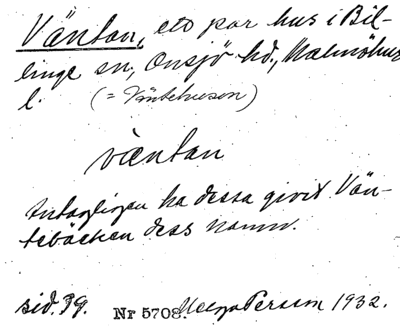 Väntan, ett par hus i Bil-
linge sn, Onsjö hd., Malmöhus
l. (= Väntehusen)
väntan
Antagligen ha dessa givit Vän-
tebäcken dess namn.
sid. 39. Nr 5708. Helge Persson 1932.